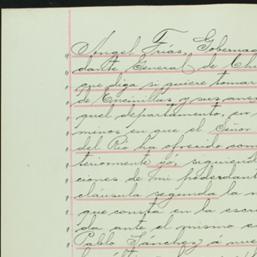 Angel Frias, Goberna
dante General de Ch
que diga si quiere tomar
de Encinillas y sus anex
quel departamento, en
menos en que el Señor
del Rio ha ofrecido com
teriormente y si siguiend
ciones de mi poderdant
cláusula segunda la
que consta en la escri
da ante el mismo e
Pablo Sanchez, á nue